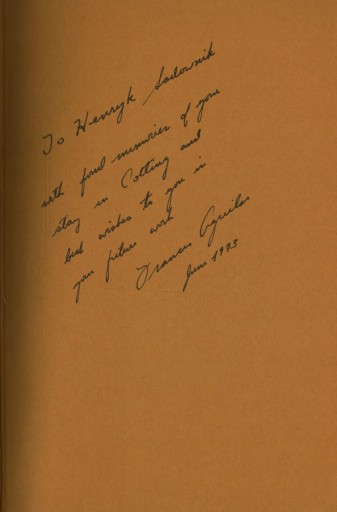 To Henryk Sadownik
with fond memories of your
stay in Cotting and
best wishes to you in
your future work
Francis Aguilar
June 1973